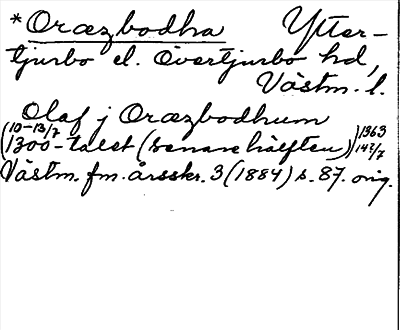 *Oræzbodha Ytter-
tjurbo el. Övertjurbo hd,
Västm. l.
Olaf j Oræzbodhum
(10-13/7 1363 14 2/7
1300-talet (senare hälften))
Västm. fm. årsskr. 3 (1884) s. 87. orig.